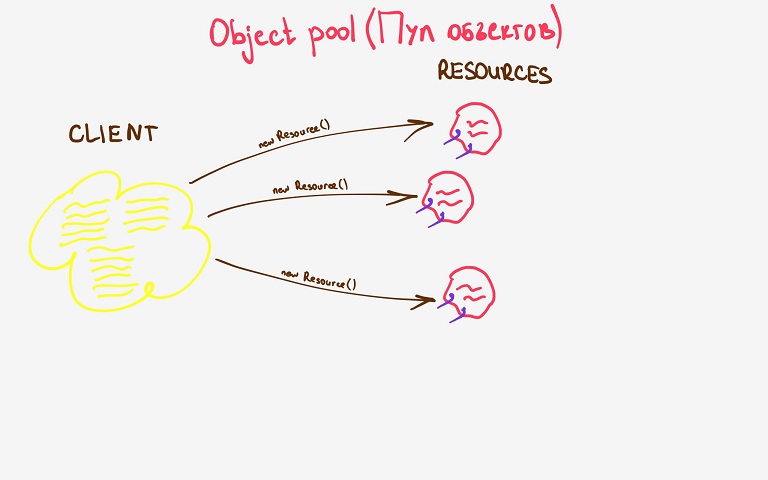 Object pool (Пул объектов)
RESOURCES
CLIENT
new Resource()
new Resource()
new Resource()